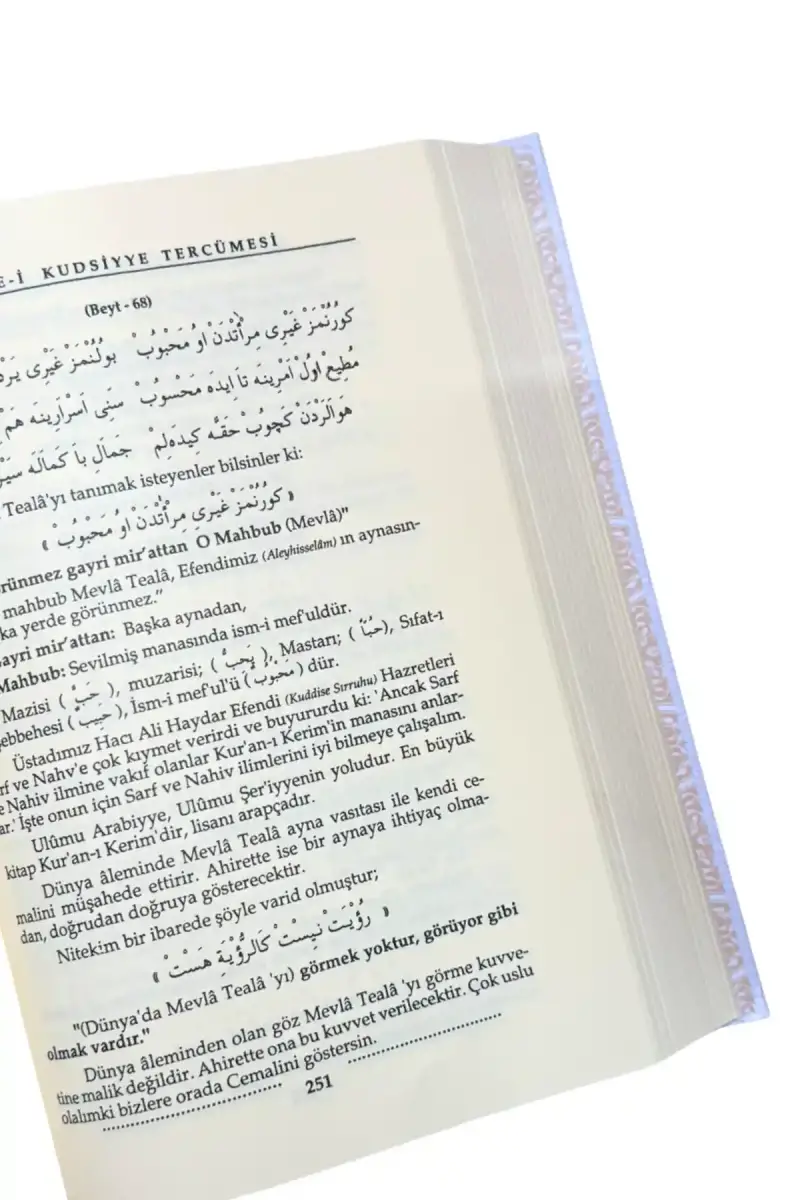 E-İ KUDSİYYE TERCÜMESİ
(Beyt - 68)
كورُنْمَزْ غَيْرِى مِرأتْدَنْ اُو مَحْبُوبْ بولُنْمَزْ غَيْرِى
مُطِيعْ اولْ اَمْرِينَه تا ايدَه مَحْسُوبْ سَنِى اَسْرَارِينَه هَمْ
هَوالَرْدَنْ كَچوُبْ حَقَّه كِيدَه لِمْ جَمَالِ بَا كَمَالَه
Tealâ'yı tanımak isteyenler bilsinler ki:
« كورُنْمَزْ غَيْرِى مِرأتْدَنْ اُو مَحْبُوبْ »
rünmez gayri mir'attan O Mahbub (Mevlâ)"
mahbub Mevlâ Tealâ, Efendimiz (Aleyhisselâm) ın aynasın-
ka yerde görünmez."
ayri mir'attan: Başka aynadan,
Mahbub: Sevilmiş manasında ism-i mef'uldür.
Mazisi ( حَبَّ ), muzarisi; ( يَحِبُّ ), Mastarı; ( حُبّاً ), Sıfat-ı
ebbehesi ( حَبِيبٌ ), İsm-i mef'ul'ü ( مَحْبُوبٌ ) dür.
Üstadımız Hacı Ali Haydar Efendi (Kuddise Sırruhu) Hazretleri
rf ve Nahv'e çok kıymet verirdi ve buyururdu ki: 'Ancak Sarf
e Nahiv ilmine vakıf olanlar Kur'an-ı Kerim'in manasını anlar-
ar.' İşte onun için Sarf ve Nahiv ilimlerini iyi bilmeye çalışalım.
Ulûmu Arabiyye, Ulûmu Şer'iyyenin yoludur. En büyük
kitap Kur'an-ı Kerim'dir, lisanı arapçadır.
Dünya âleminde Mevlâ Tealâ ayna vasıtası ile kendi ce-
malini müşahede ettirir. Ahirette ise bir aynaya ihtiyaç olma-
dan, doğrudan doğruya gösterecektir.
Nitekim bir ibarede şöyle varid olmuştur;
« رُؤْيَتْ نِيسْتْ كَالرُّؤْيَةِ هَسْتْ »
"(Dünya'da Mevlâ Tealâ 'yı) görmek yoktur, görüyor gibi
olmak vardır."
Dünya âleminden olan göz Mevlâ Tealâ 'yı görme kuvve-
tine malik değildir. Ahirette ona bu kuvvet verilecektir. Çok uslu
olalımki bizlere orada Cemalini göstersin.
251